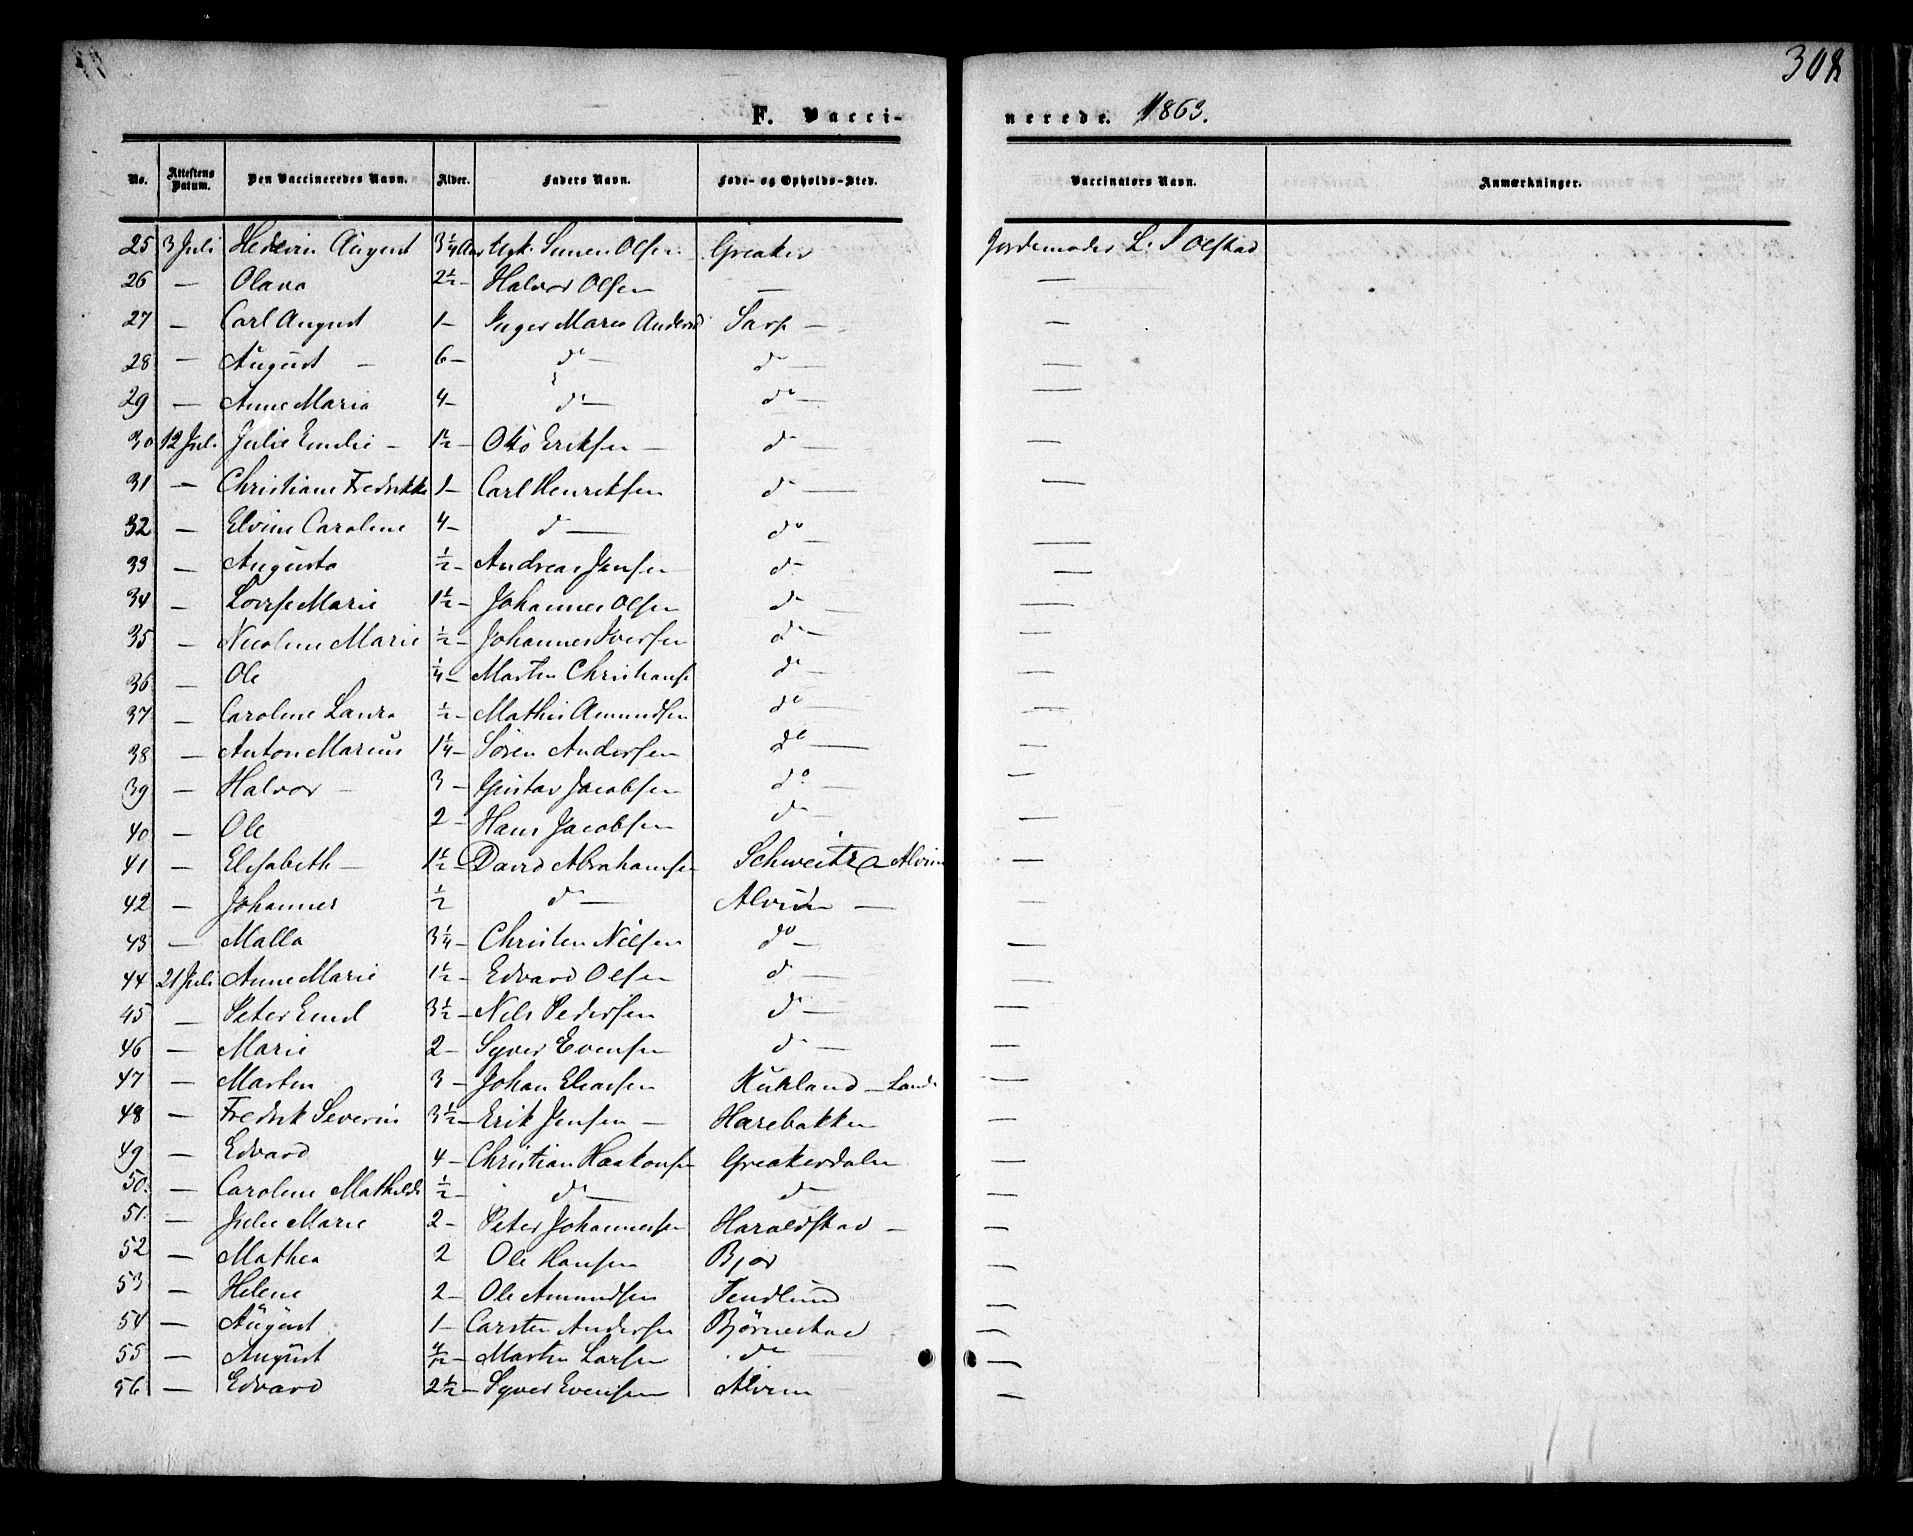 308
F. Vacci-
nerede. 1863.
No. Attestens Datum. Den Vaccineredes Navn. Alder. Faders Navn. Føde- og Opholds-Sted. Vaccinators Navn. Anmærkninger.
25 3 Juli August 3 1/4 Aar Simen Olsen Greaker Jordemoder L. Olstad
26 — Olava 2 1/2 — Halvor Olsen — —
27 — Carl August 1 — Inger Marie Sarp — —
28 — August — 6 — do — do — —
29 — Anne Maria 4 — do — do — —
30 12 Juli Julie Emilie — 1 1/2 — Otto Eriksen — do — —
31 — Christiane Fredrikke 1 — Carl Henriksen do — —
32 — Elvine Caroline 4 — do — do — —
33 — Augusta 1/2 — Andreas Jensen do — —
34 — Lovise Marie 1 1/2 — Johannes Olsen do — —
35 — Nicoline Marie 1/2 — Johannes Iversen do — —
36 — Ole 1/4 — Martin Christians do — —
37 — Caroline Laura 1/2 — Mathis Amundsen do — —
38 — Anton Marius 1 1/4 — Sören Andersen do — —
39 — Halvor — 3 — Gustav Jacobsen do — —
40 — Ole 2 — Hans Jacobsen do — —
41 — Elisabeth — 1 1/2 — David Abrahamsen Schweitz Alvim —
42 — Johannes 1/2 do — Alvim — —
43 — Malla 3 1/4 — Christen Nilsen do — —
44 21 Juli Anne Marie 1 1/2 — Edvard Olsen do — —
45 — Peter Emil 3 1/2 — Nils Pedersen do — —
46 — Marie 2 — Syver Evensen do — —
47 — Martin 3 — Johan Eliassen — Lande —
48 — Fredrik Severin 3 1/2 — Erik Jensen — Harebakken —
49 — Edvard 4 — Christian Haakonsen Greakerdalen —
50. — Caroline Mathilde 1/2 — do — do — —
51. — Julie Marie 2 — Peter Johannesen Haraldstad — —
52 — Mathea 2 Ole Hansen Bjor —
53 — Helene 2 — Ole Amundsen Tendlund —
54 — August 1 — Carsten Andersen Björnestad —
55 — August — Martin Larsen do — —
56 — Edvard 2 1/2 — Syver Evensen Alvim —